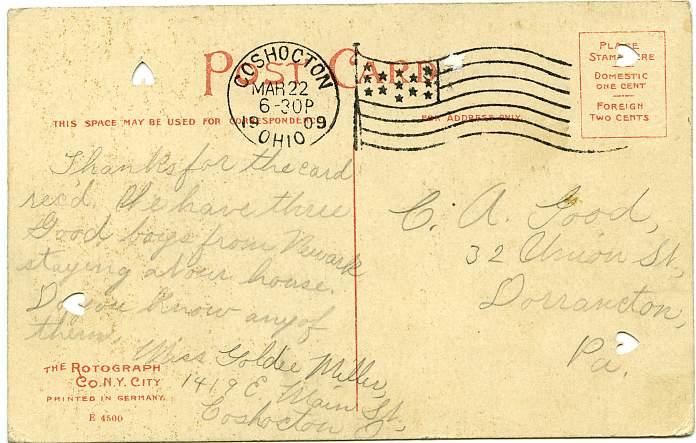 POST CARD
COSHOCTON
MAR 22
6-30P
1909
OHIO
PLACE
STAMP HERE
DOMESTIC
ONE CENT
FOREIGN
TWO CENTS
THIS SPACE MAY BE USED FOR CORRESPONDENCE
FOR ADDRESS ONLY.
Thanks for the card
rec'd. We have three
Good boys from Newark
staying at our house.
Do you know any of
them.
Miss Goldee Miller,
1419 E. Main St,
Coshocton O
C. A. Good,
32 Union St,
Dorrancton,
Pa.
THE ROTOGRAPH
CO. N.Y. CITY
PRINTED IN GERMANY.
E 4500